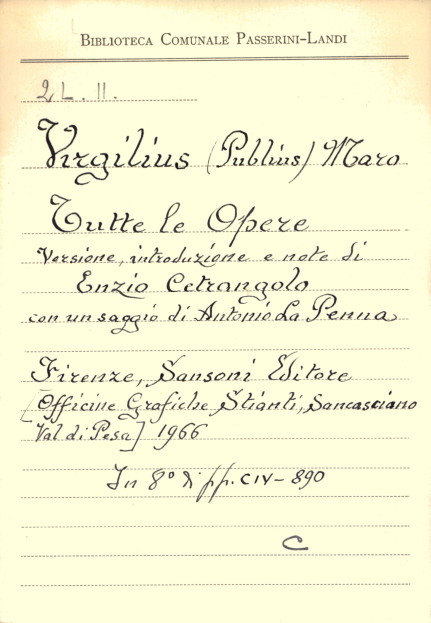 BIBLIOTECA COMUNALE PASSERINI-LANDI
2L. 11.
Virgilius (Publius) Maro
Tutte le Opere
Versione, introduzione e note di
Enzio Cetrangolo
con un saggio di Antonio La Penna
Firenze, Sansoni Editore
[Officine Grafiche Stianti, Sancasciano
Val di Pesa] 1966
In 8° di pp. CIV-890
C